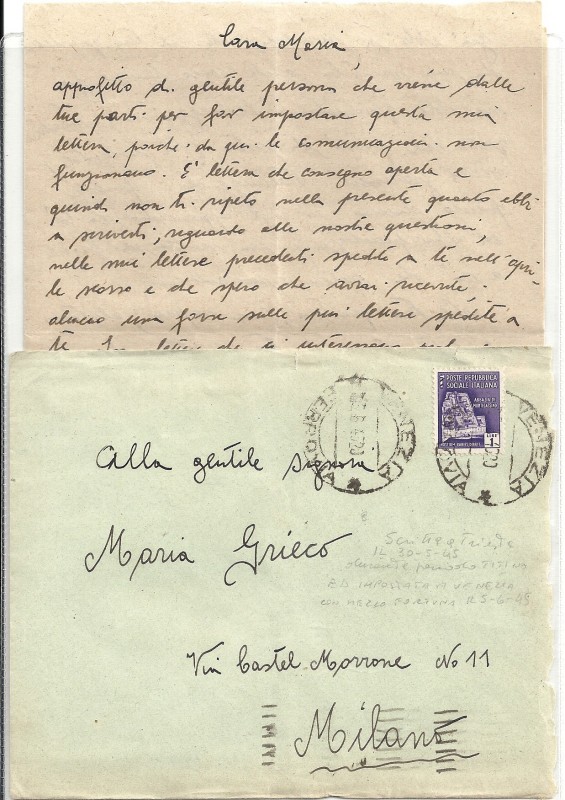 Cara Maria,
approfitto di gentile persona che viene dalle
tue parti per far impostare questa mia
lettera, poiché da qui le comunicazioni non
funzionano. È lettera che consegno aperta e
quindi non ti ripeto nella presente quanto ebbi
a scriverti, riguardo alle nostre questioni,
nelle mie lettere precedenti spedite a te nell'apri-
le scorso e che spero che avrai ricevute,
almeno una forse sulle più lettere spedite a
te.
POSTE REPUBBLICA
SOCIALE ITALIANA
LIRE
1
VENEZIA
FERROVIA
VENEZIA
Alla gentile signora
Maria Grieco
Scritta a Trieste
IL 30-5-45
durante periodo TITINO
ED IMPOSTATA A VENEZIA
con mezzo fortuna IL 5-6-45
Via Castel Morrone No 11
Milano